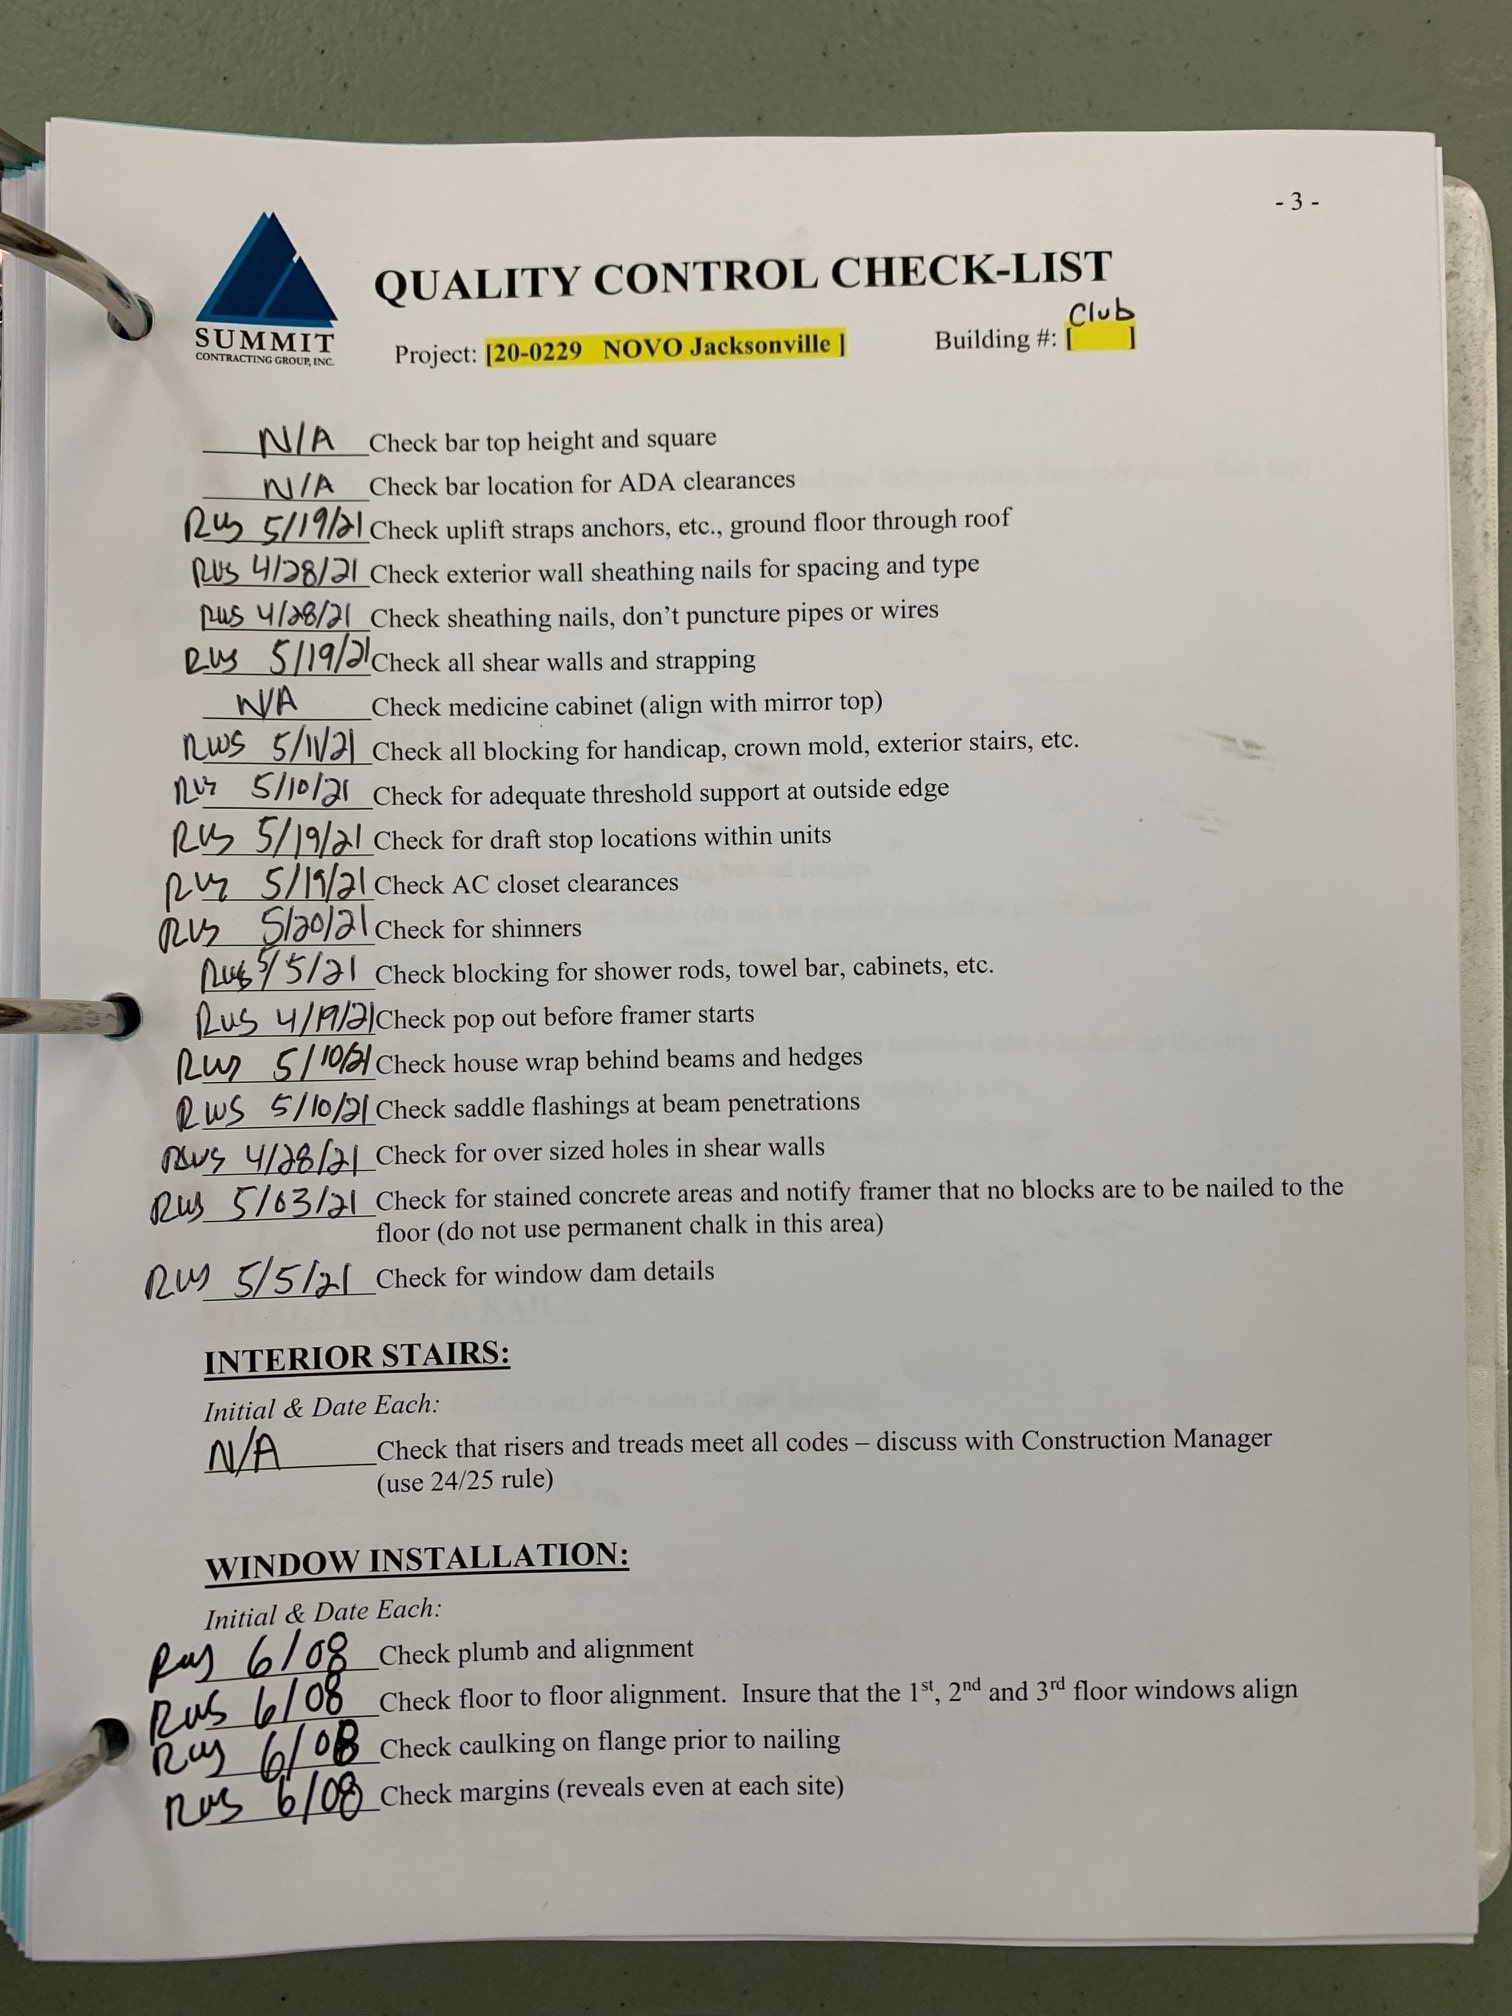 - 3 -
SUMMIT
CONTRACTING GROUP, INC.
QUALITY CONTROL CHECK-LIST
Club
Project: [20-0229 NOVO Jacksonville ] Building #: [ ]
N/A Check bar top height and square
N/A Check bar location for ADA clearances
RWS 5/19/21 Check uplift straps anchors, etc., ground floor through roof
RWS 4/28/21 Check exterior wall sheathing nails for spacing and type
RWS 4/28/21 Check sheathing nails, don't puncture pipes or wires
RWS 5/19/21 Check all shear walls and strapping
N/A Check medicine cabinet (align with mirror top)
RWS 5/11/21 Check all blocking for handicap, crown mold, exterior stairs, etc.
RWS 5/10/21 Check for adequate threshold support at outside edge
RWS 5/19/21 Check for draft stop locations within units
RWS 5/19/21 Check AC closet clearances
RWS 5/20/21 Check for shinners
RWS 5/5/21 Check blocking for shower rods, towel bar, cabinets, etc.
RWS 4/19/21 Check pop out before framer starts
RWS 5/10/21 Check house wrap behind beams and hedges
RWS 5/10/21 Check saddle flashings at beam penetrations
RWS 4/28/21 Check for over sized holes in shear walls
RWS 5/03/21 Check for stained concrete areas and notify framer that no blocks are to be nailed to the
floor (do not use permanent chalk in this area)
RWS 5/5/21 Check for window dam details
INTERIOR STAIRS:
Initial & Date Each:
N/A Check that risers and treads meet all codes – discuss with Construction Manager
(use 24/25 rule)
WINDOW INSTALLATION:
Initial & Date Each:
RWS 6/08 Check plumb and alignment
RWS 6/08 Check floor to floor alignment. Insure that the 1st, 2nd and 3rd floor windows align
RWS 6/08 Check caulking on flange prior to nailing
RWS 6/08 Check margins (reveals even at each site)